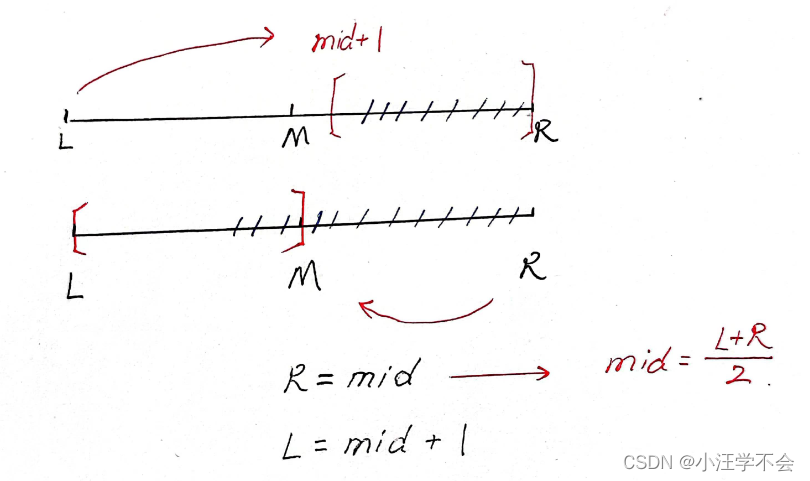 mid+1
L M R
L M R
R = mid → mid = (L+R)/2
L = mid + 1
CSDN @小汪学不会